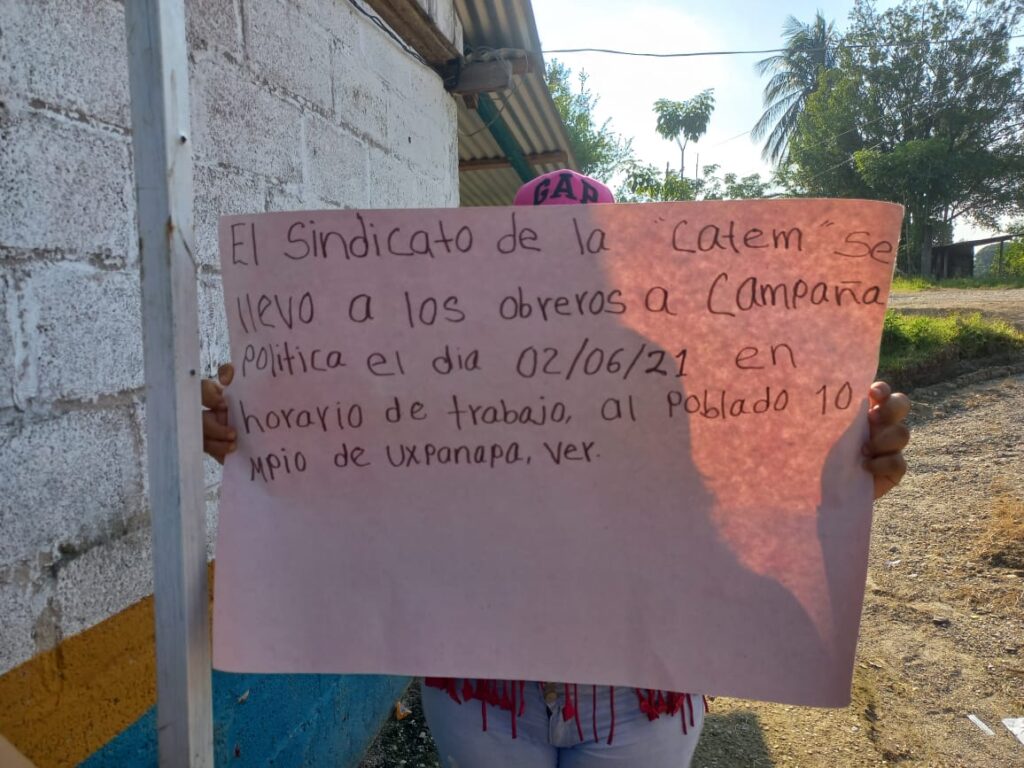 GAP
El Sindicato de la "Catem" se
llevo a los obreros a Campaña
Politica el dia 02/06/21 en
horario de trabajo, al Poblado 10
Mpio de Uxpanapa, Ver.